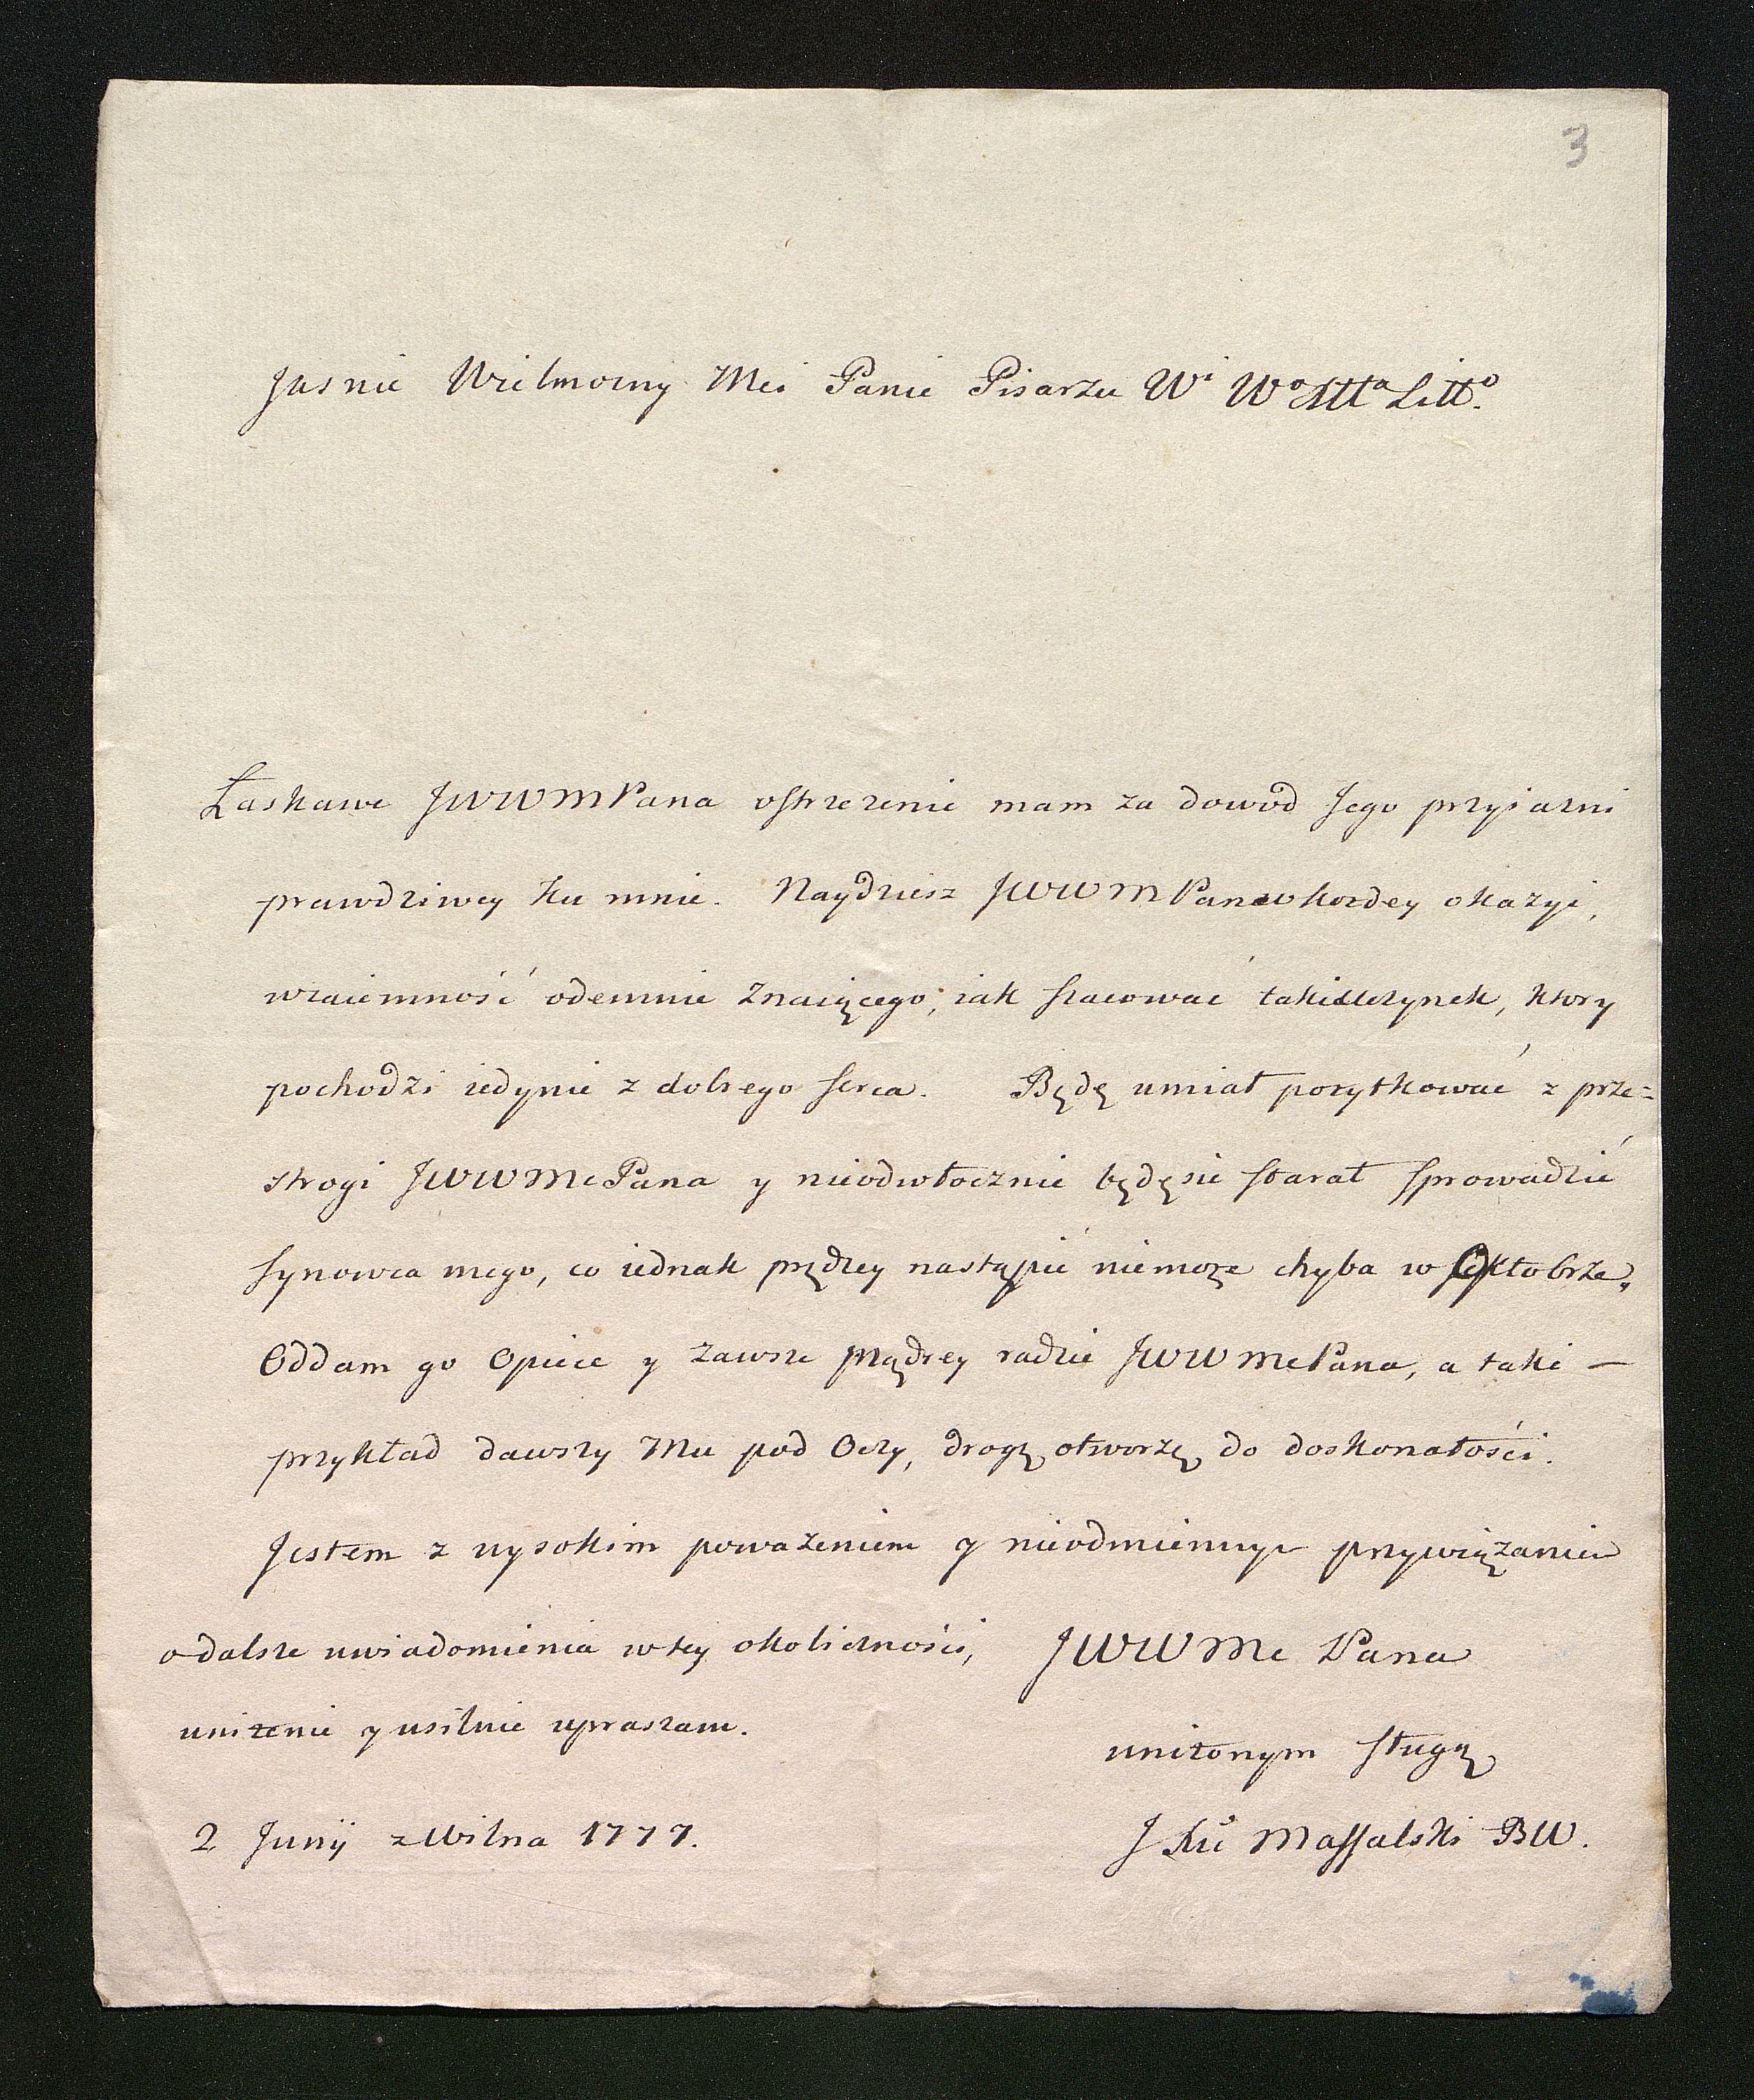 3
Jasnie Wielmozny Mci Panie Pisarzu Wi Wo Xtta Littº.
Łaskawe JWWMPana ostrzezenie mam za dowod Jego przyiazni
prawdziwey ku mnie. Naydziesz JWWMPan w kozdey okazyi,
wzaiemność odemnie znaiącego, iak szacować taki uczynek, ktory
pochodzi iedynie z dobrego serca. Będę umiał pozytkować z prze=
strogi JWWMcPana y nieodwłocznie będę sie starał sprowadzić
synowca mego, co iednak prędzey nastąpić niemoze chyba w Oktobrze,
Oddam go Opiece y zawsze mądrey radzie JWWMcPana, a taki —
przykład dawszy Mu pod Oczy, drogę otworzę do doskonałości.
Jestem z wysokim poważeniem y nieodmiennym przywiązaniem
o dalsze uwiadomienia w tey okoliczności, JWWMc Pana
unizenie y usilnie upraszam.
unizonym sługą
2 Junij z Wilna 1777. J Xże Massalski BW.